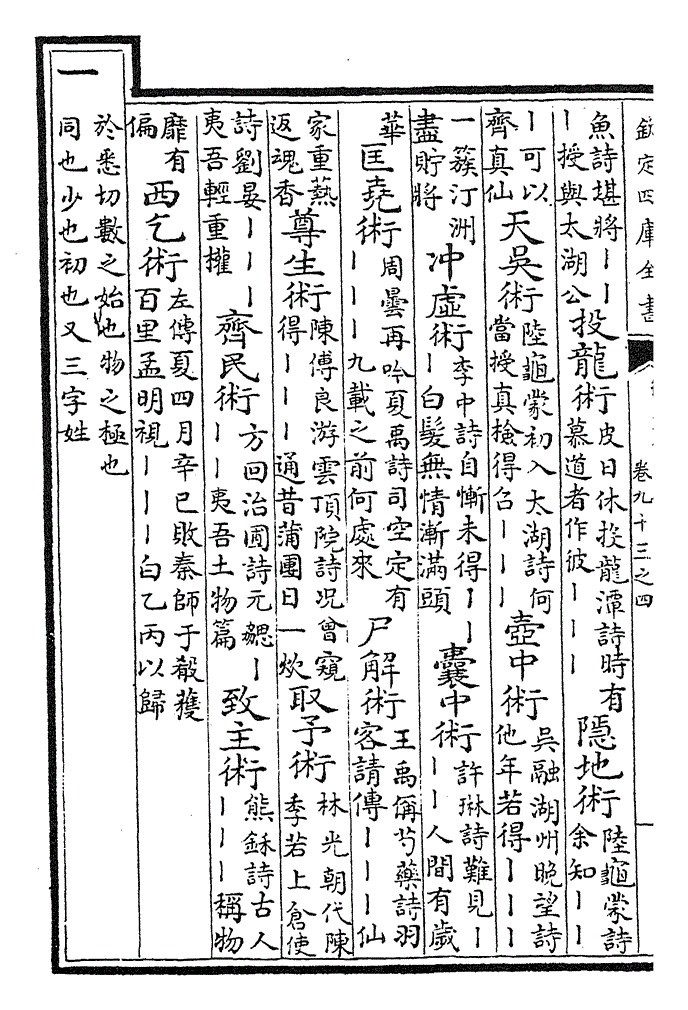 欽定四庫全書 卷九十三之四
魚詩堪將丨丨丨授與太湖公 投龍術 皮日休投龍潭詩時有慕道者作彼丨丨丨 隱地術 陸龜蒙詩余知丨丨
丨可以齊真仙 天吳術 陸龜蒙初入太湖詩何當授真檢得召丨丨丨 壺中術 吳融湖州晚望詩他年若得丨丨丨
一簇汀洲盡貯將 冲虛術 李中詩自慚未得丨丨丨白髮無情漸滿頭 囊中術 許琳詩難見丨丨丨人間有歲
華 匡堯術 周曇再吟夏禹詩司空定有丨丨丨九載之前何處來 尸解術 王禹偁芍藥詩羽客請傳丨丨丨仙
家重爇返魂香 尊生術 陳傅良游雲頂院詩况曾窺得丨丨丨通昔蒲團日一炊 取予術 林光朝代陳季若上倉使
詩劉晏丨丨丨夷吾輕重權 齊民術 方回治圃詩元勰丨丨丨夷吾土物篇 致主術 熊鉌詩古人丨丨丨稱物
靡有偏 西乞術 左傳夏四月辛巳敗秦師于殽獲百里孟明視丨丨丨白乙丙以歸
一 於悉切數之始也物之極也同也少也初也又三字姓